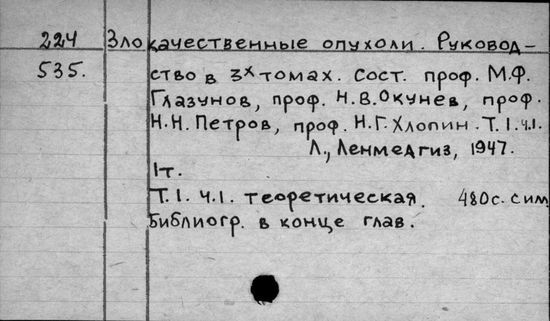 224 Злокачественные опухоли. Руковод-
535. ство в 3х томах. Сост. проф. М.Ф.
Глазунов, проф. Н.В.Окунев, проф.
Н.Н.Петров, проф. Н.Г.Хлопин. Т.1.ч.1.
Л., Ленмедгиз, 1947.
1т.
Т.1. ч.1. теоретическая. 480с. с им.
Библиогр. в конце глав.